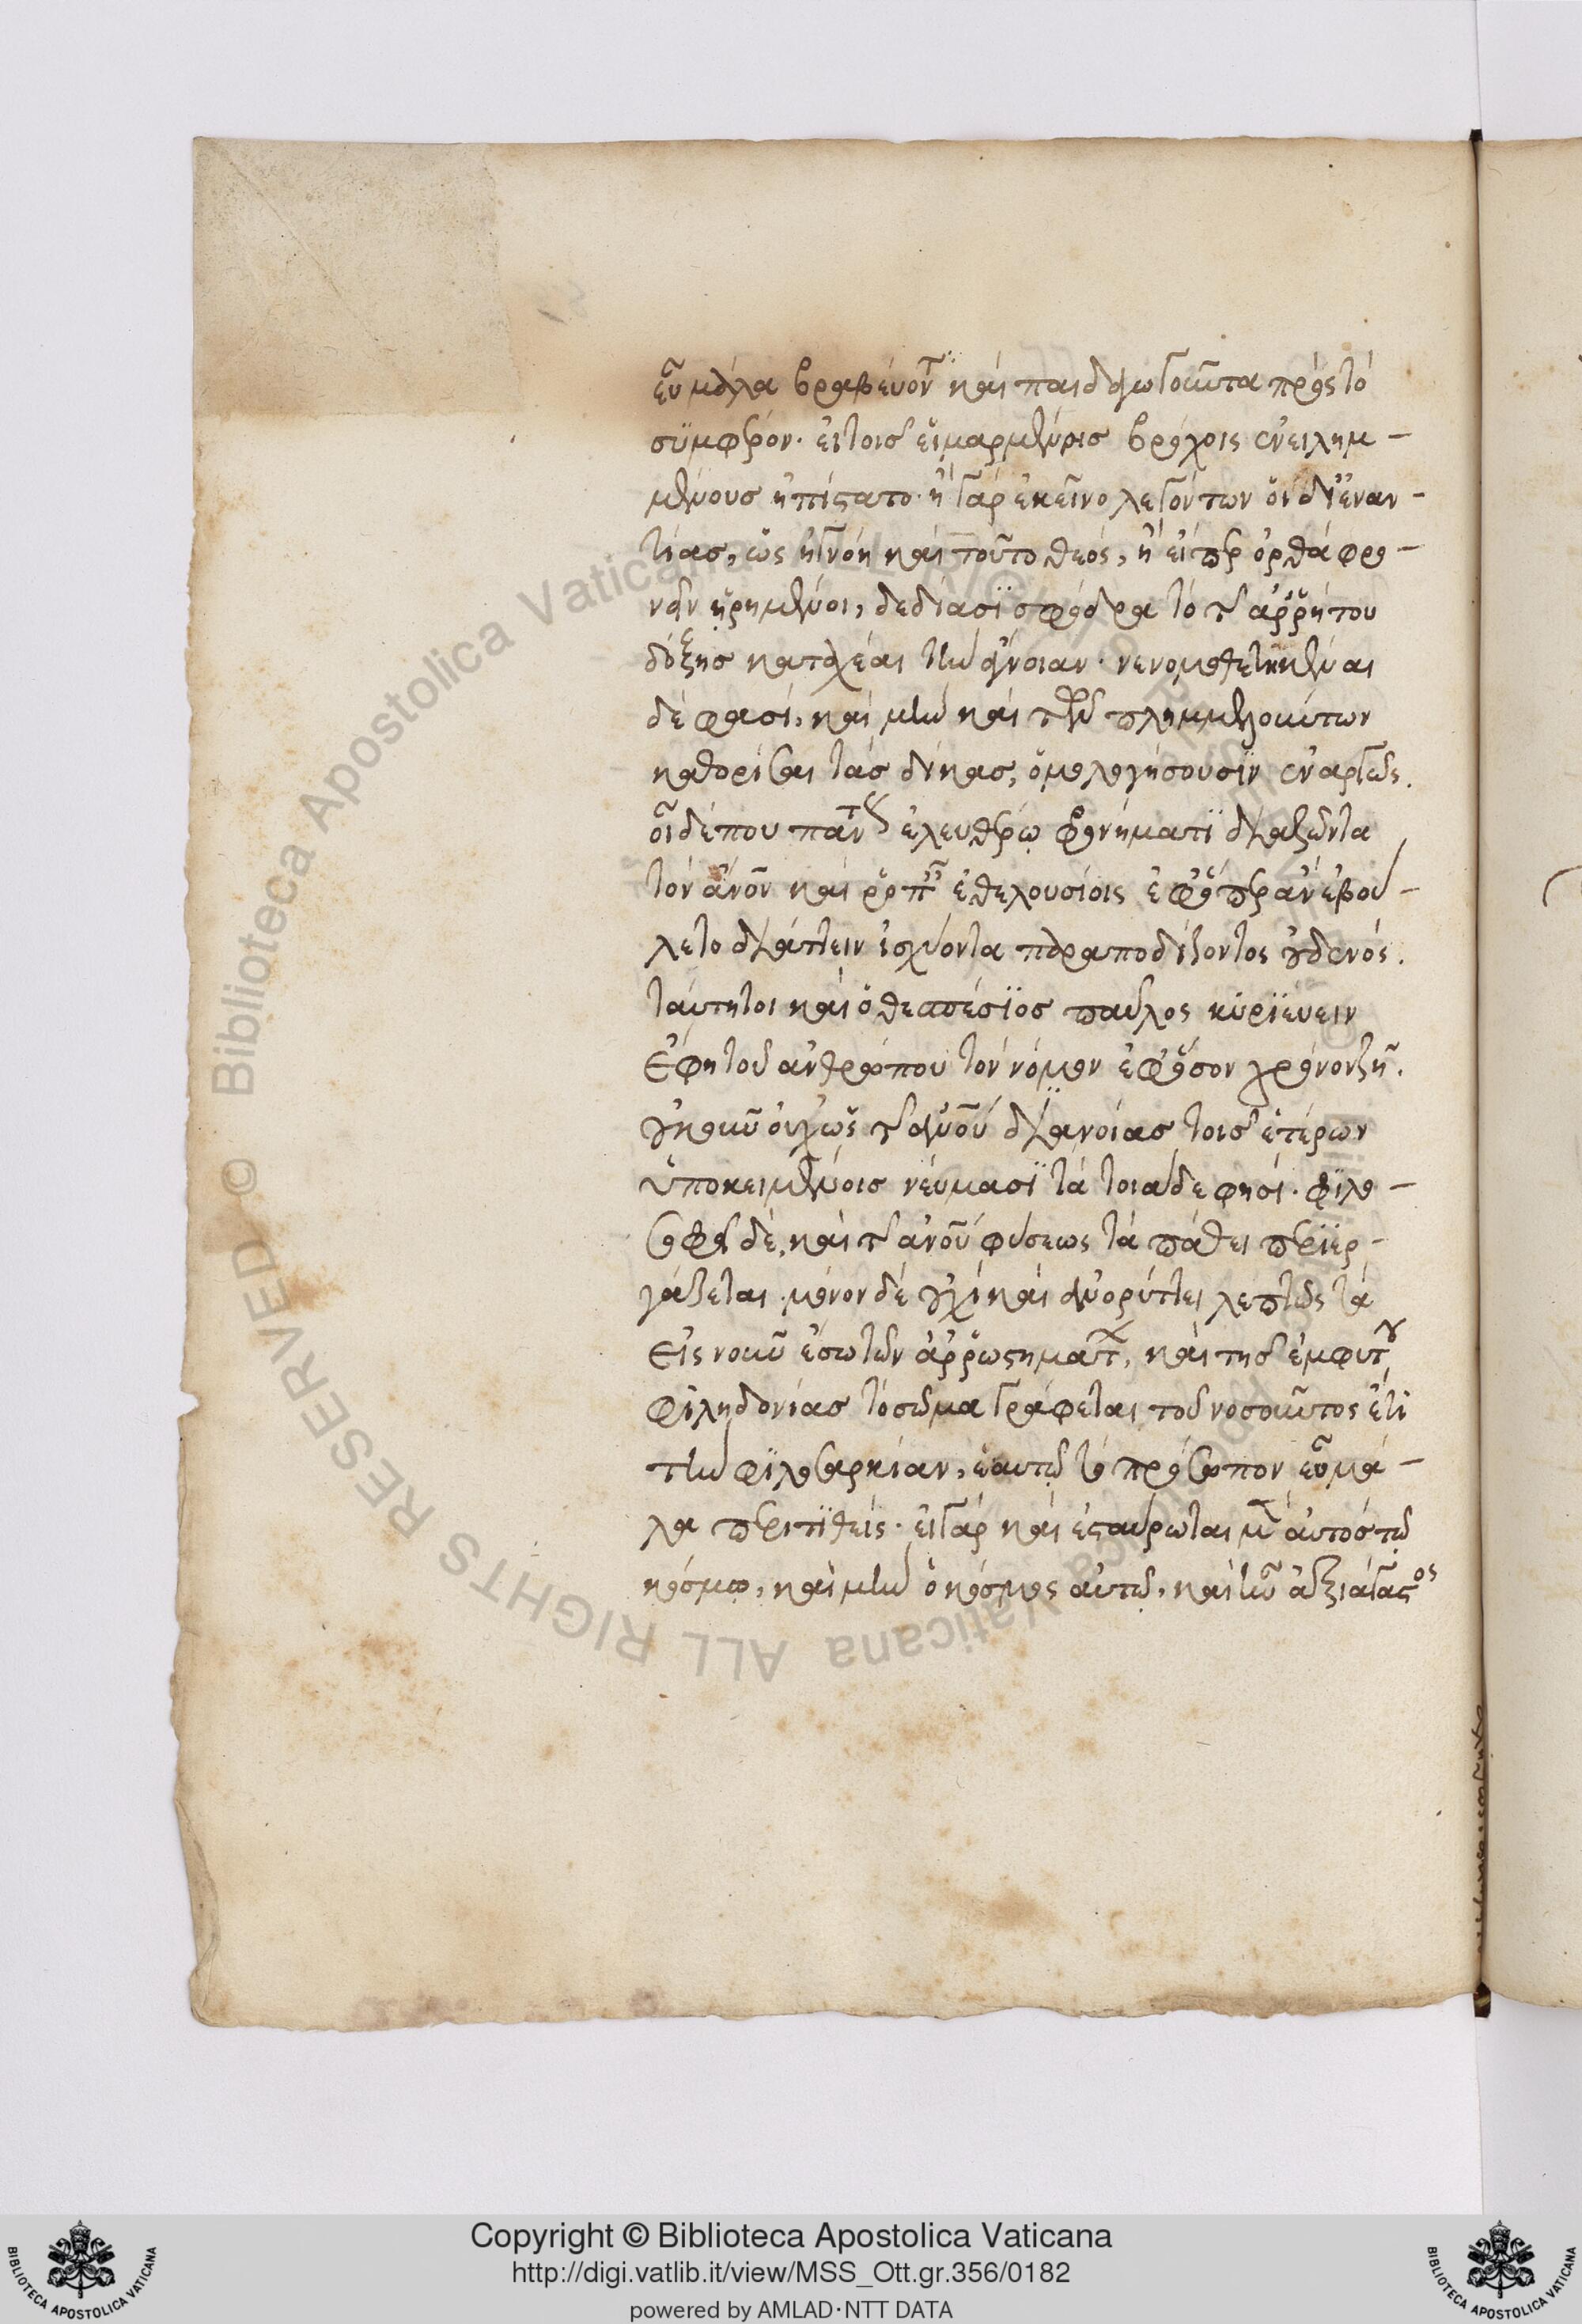 εὖ μάλα βραβεύοντι καὶ παιδαγωγοῦντα πρὸς τὸ
σύμφερον. εἰ τοῖς εἱμαρμένοις βρόχοις ἐνειλημ-
μένους ἠπίστατο. ἢ γὰρ ἐκεῖνο λεγόντων ὅν δι' ἐναν-
τίας, ὡς ἠγνόη καὶ τοῦτο θεός, ἢ εἴπερ ὀρθὰ φρο-
νεῖν ᾑρημένοι, δεδίασι σφόδρα τὸ τῆς ἀρρήτου
δόξης καταχέαι τὴν ἄνοιαν. νενομοθετηκέναι
δέ φασι, καὶ μὴν καὶ τῶν πλημμελούντων
καθορίσαι τὰς δίκας, ὁμολογήσουσιν ἐναργῶς.
οἶδέ που πάντως ἐλευθέρῳ φρονήματι διαζῶντα
τὸν ἄνον καὶ ῥοπαῖς ἐθελουσίοις ἐφ' ὅπερ ἂν ἐβού-
λετο διάττειν ἰσχύοντα παραποδίζοντος οὐδενός.
ταύτητοι καὶ ὁ θεσπέσιος παῦλος κυριεύειν
ἔφη τοῦ ἀνθρώπου τὸν νόμον ἐφ' ὅσον χρόνον ζῇ.
οὐκοῦν οὐχ ὡς τῆς αὐτοῦ διανοίας τοῖς ἑτέρων
ὑποκειμένοις νεύμασι τὰ τοιάδε φησί. φιλο-
σοφεῖ δὲ, καὶ τῆς ἀνου φύσεως τὰ πάθει περιερ-
γάζεται. μόνον δὲ οὐχὶ καὶ ἀνορύττει λεπτῶς τὰ
εἰς νοῦν ἔσω τῶν ἀρρωστημάτων, καὶ τῆς ἐμφύτου
φιληδονίας τὸ σῶμα γράφεται τοῦ νοσοῦντος ἔτι
τὴν φιλοσαρκίαν, ἑαυτῷ τὸ πρόσωπον εὖ μά-
λα περιτιθείς. εἰ γὰρ καὶ ἐσταύρωται μὲν αὐτὸς τῷ
κόσμῳ, καὶ μὴν ὁ κόσμος αὐτῷ, καὶ ἦν ἀξιάγαστος
Copyright © Biblioteca Apostolica Vaticana
http://digi.vatlib.it/view/MSS_Ott.gr.356/0182
powered by AMLAD·NTT DATA